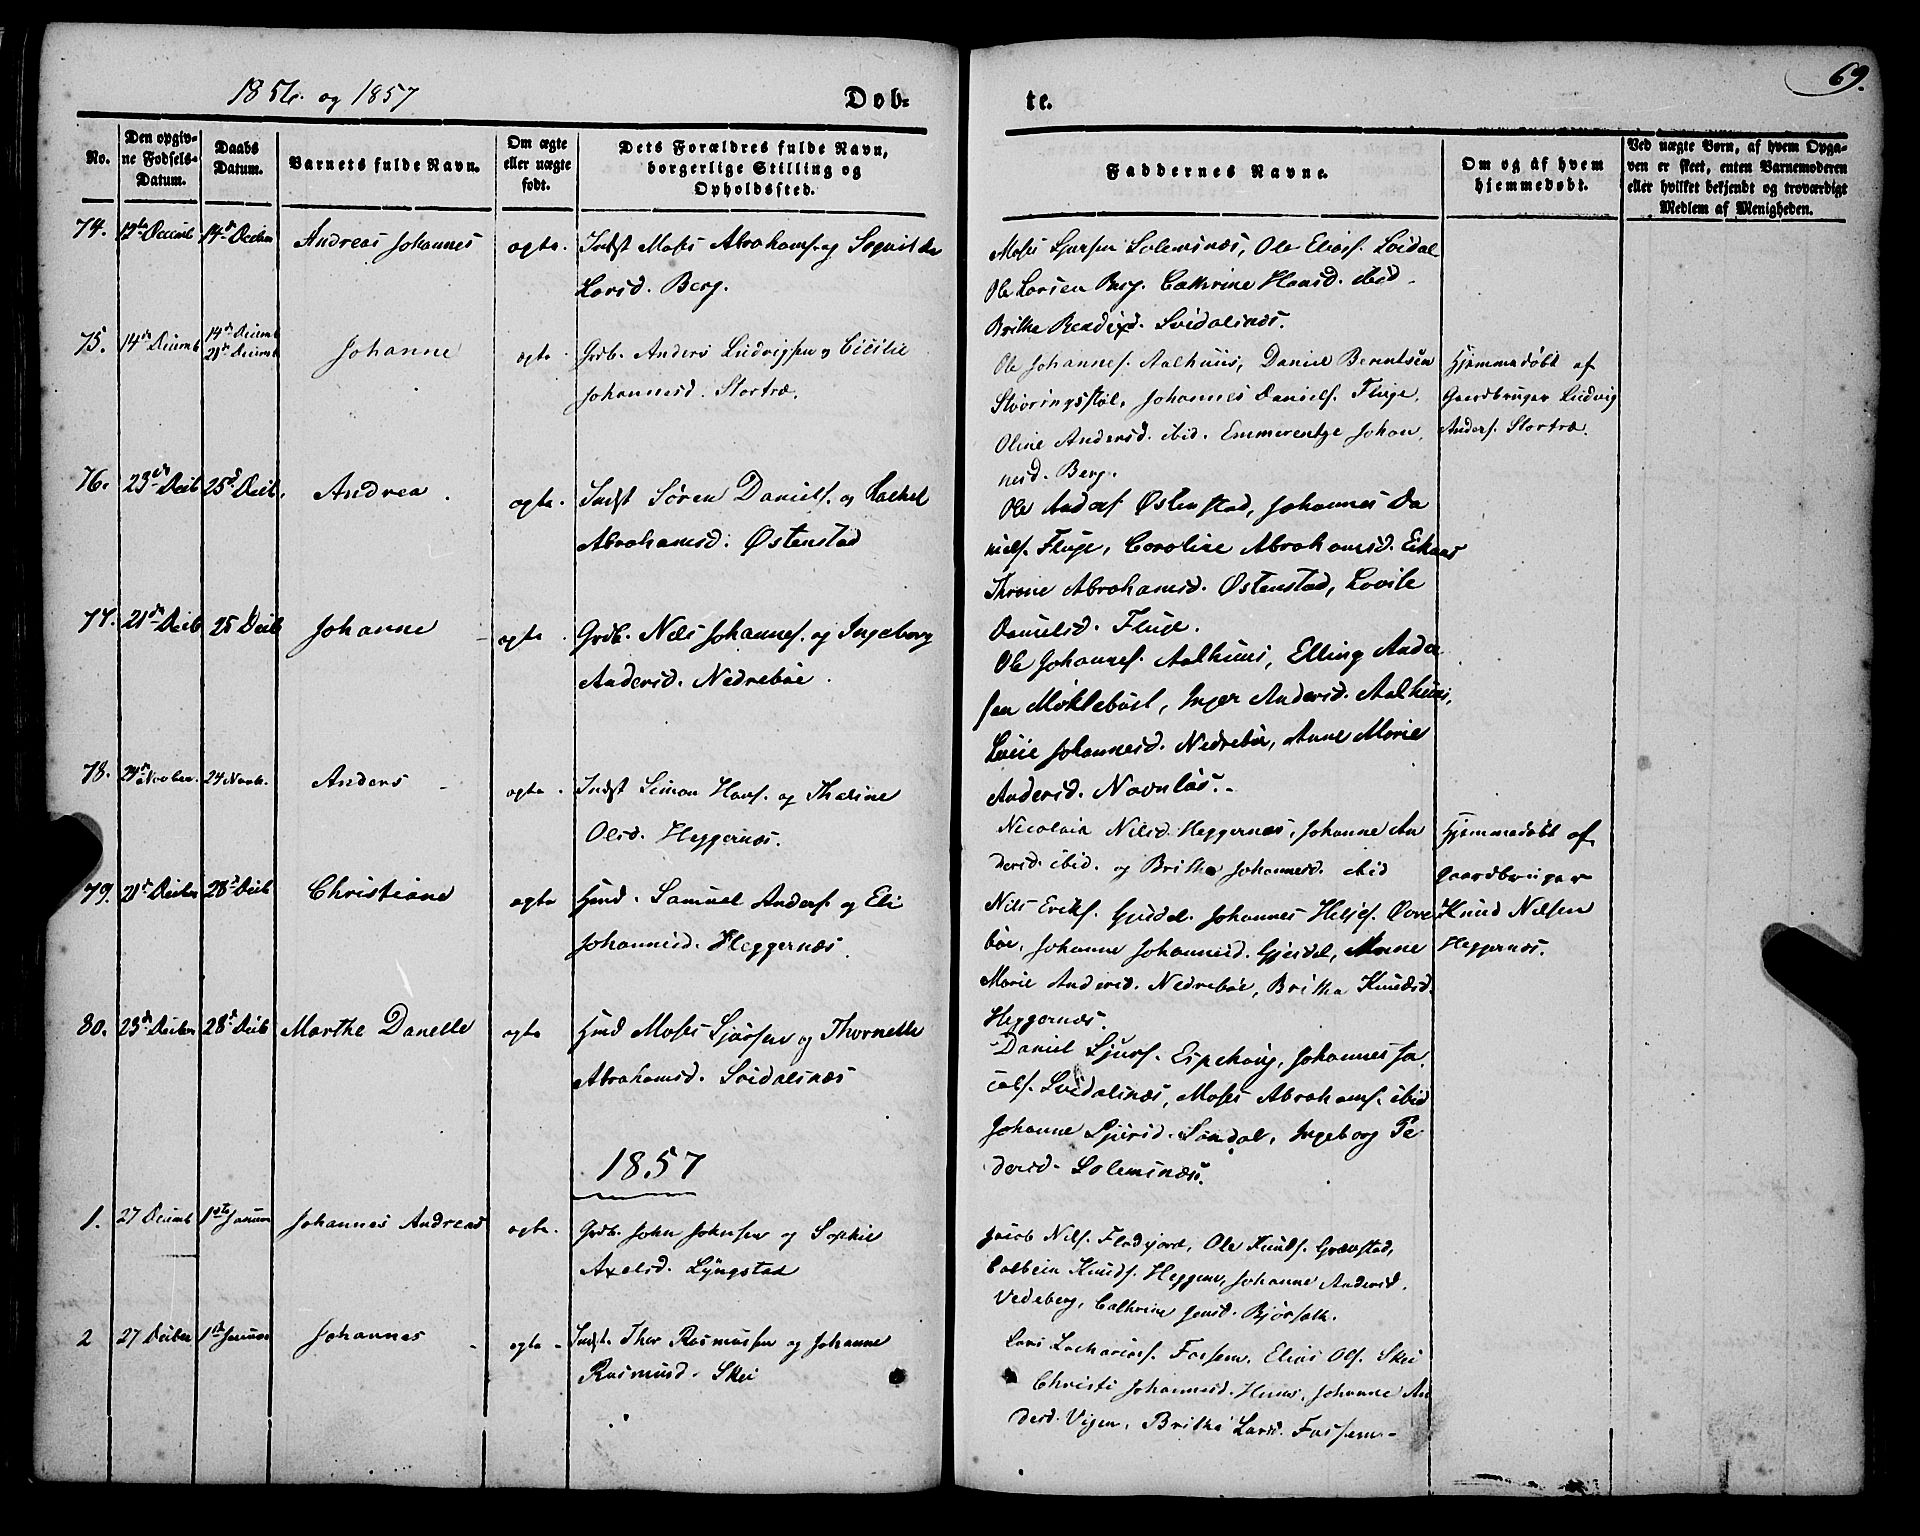 1856. og 1857
Døb-
te.
69.
No.
Den opgiv-
ne Fødsels-
Datum.
Daabs
Datum.
Varnets fulde Navn.
Om ægte
eller uægte
født.
Dets Forældres fulde Navn,
borgerlige Stilling og
Opholdssted.
Faddernes Navne.
Om og af hvem
hjemmedøbt.
Ved uægte Børn, af hvem Opga-
ven er skeet, enten Barnemoderen
eller hvilket bekjendt og troværdigt
Medlem af Menigheden.
74. 12te Decemb 14de Decbr Andreas Johannes ægte. Indst Moses Abrahams. og
Larsd. Berg.
Moses Sjursen Solemsnæs, Ole Eliass. Svidal
Ole Larsen Berg. Cathrine Hansd. ibid.
Brithe Bendixd. Svidalsnæs.
75. 14de Decemb 14de Decemb
21de Decemb
Johanne ægte Grdb. Anders Ludvigsen og Cicilie
Johannesd. Stortræ.
Ole Johannes. Aalhuus, Daniel Berentsen
Støvringsstøl, Johannes Daniels. Fluge,
Oline Andersd. ibid. Emmerentze Johan-
nesd. Berg.
Hjemmedøbt af
Gaardbruger Ludvig
Anders. Stortræ.
76. 23de Decb 25de Decb. Andrea ægte. Indst Søren Daniels. og Rachel
Abrahamsd. Østenstad
Ole Anders. Østenstad, Johannes Da
niels. Fluge, Caroline Abrahamsd. Eikaas
Throne Abrahamsd. Østenstad, Lovise
Danielsd. Fluge.
77. 21de Decb 25 Decb Johanne ægte. Grdb. Niels Johannes. og Ingeborg
Andersd. Nedrebøe.
Ole Johannes. Aalhuus, Elling Ander
sen Myklebust, Inger Andersd. Aalhuus,
Johannesd. Nedrebøe, Anne Marie
Andersd. Navnløs.
78. 24de Novber. 24 Novb. Anders ægte. Indst Simon Hans. og Thaline
Olsd. Heggernæs.
Nicolaia Nilsd. Heggernæs, Johanne An
dersd. ibid. og Brithe Johannesd. ibid
Hjemmedøbt af
Gaardbruger
Knud Nilsen
Heggernæs.
79. 21de Decber 28de Decb Christiane ægte Hmd. Samuel Anders. og Eli
Johannesd. Heggernæs.
Nils Eriks. Johannes Helges. Øvre
bøe, Johanne Johannesd. Gjeidel, Anne
Marie Andersd. Nedrebøe, Britha Knudsd.
Heggernæs.
80. 23de Decber 28de Decb Marthe Danelle ægte Hmd Moses Sjursen og Thornelle
Abrahamsd. Svidalsnæs
Daniel Sjurs. Espehoug, Johannes Ja
cobs. Svidalsnæs, Moses Abrahams. ibid
Johanne Sjursd. Søndal, Ingeborg Pe
dersd. Solemsnæs.
1857
1. 27 Decemb 1ste Januar Johannes Andreas ægte. Grdb. John Johnsen og Sophie
Axelsd. Lyngstad
Jacob Nils. Fladjord, Ole Knuds. Grønstad,
Colbein Knuds. Heggem, Johanne Andersd.
Vedeberg, Cathrine Jensd. Bjørsath.
2 27 Decber 1ste Januar Johannes ægte Indst. Thor Rasmussen og Johanne
Rasmusd. Skei
Lars Zachariass. Fossem. Elias Ols. Skei
Christi Johannesd. Huus, Johanne An
dersd. Vigen, Brithe Larsd. Fossem.